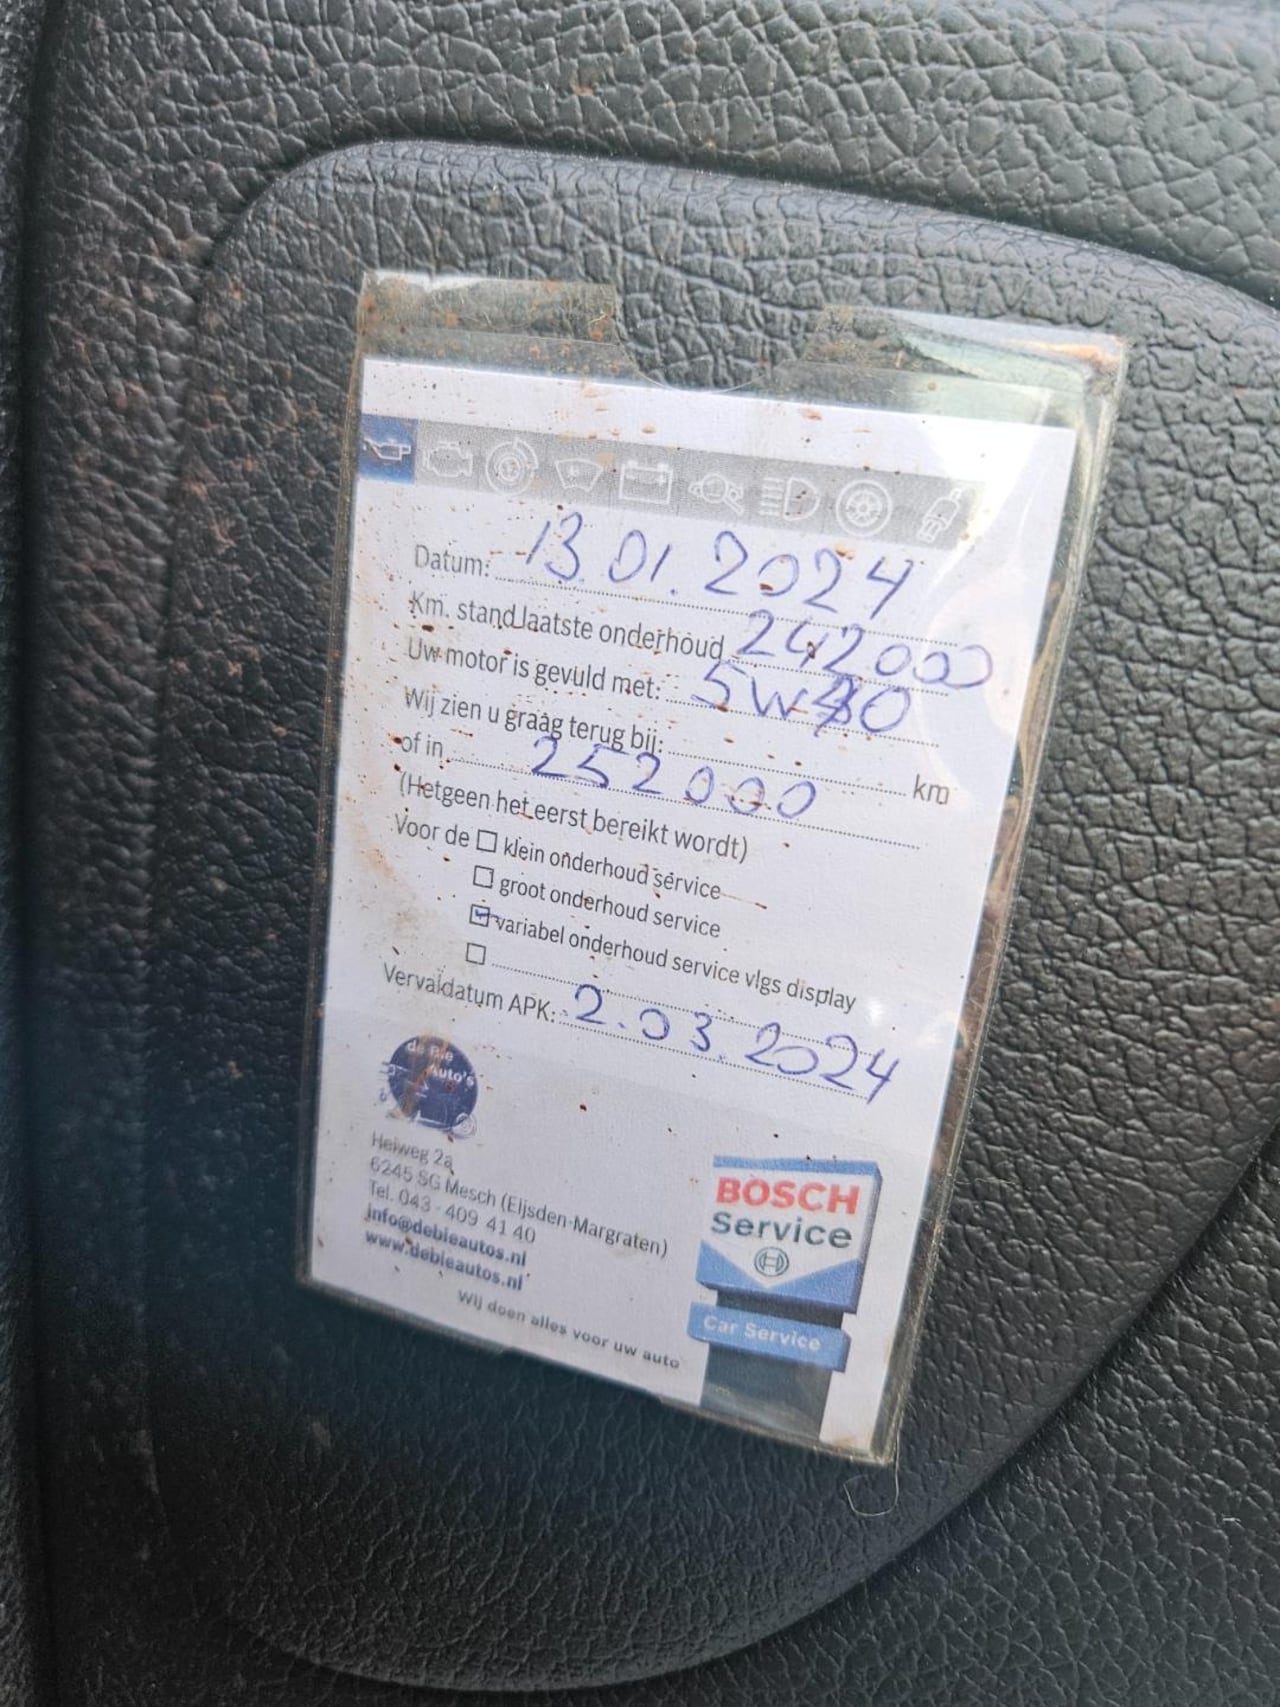 Datum: 13.01.2024
Km. stand laatste onderhoud 242000
Uw motor is gevuld met:
Wij zien u graag terug bij: km
of in 252000
(Hetgeen het eerst bereikt wordt)
Voor de klein onderhoud service
groot onderhoud service
variabel onderhoud service vlgs display
Vervaldatum APK: 2.03.2024
de Bie
Auto's
Heiweg 2a
6245 SG Mesch (Eijsden-Margraten)
Tel. 043 - 409 41 40
info@debieautos.nl
www.debieautos.nl
Wij doen alles voor uw auto
BOSCH
Service
Car Service